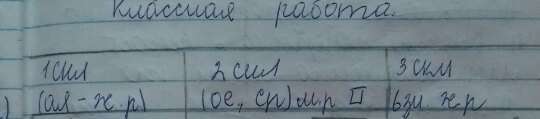 Классная работа.
1 скл 2 скл 3 скл
(ая - ж.р) (ое, ср) м.р □ ь ж.р